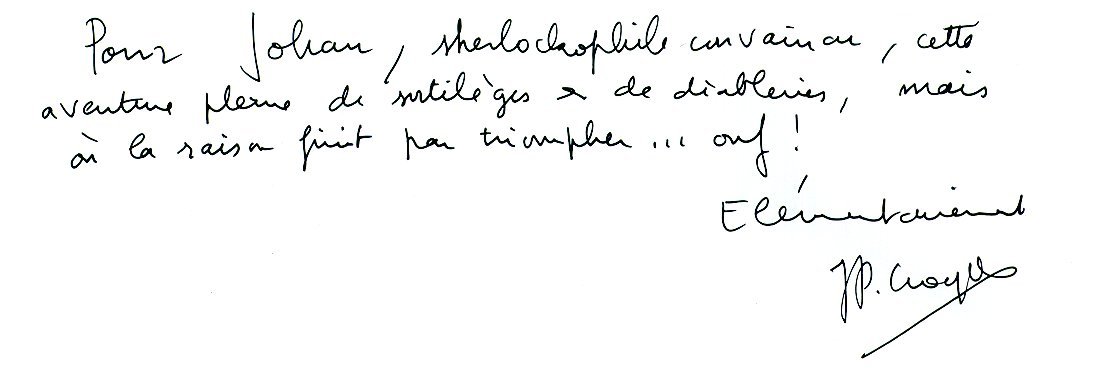 Pour Johan, sherlockophile convaincu, cette
aventure pleine de sortilèges & de diableries, mais
où la raison finit par triompher... ouf !
Elémentairement
JP. Croquet